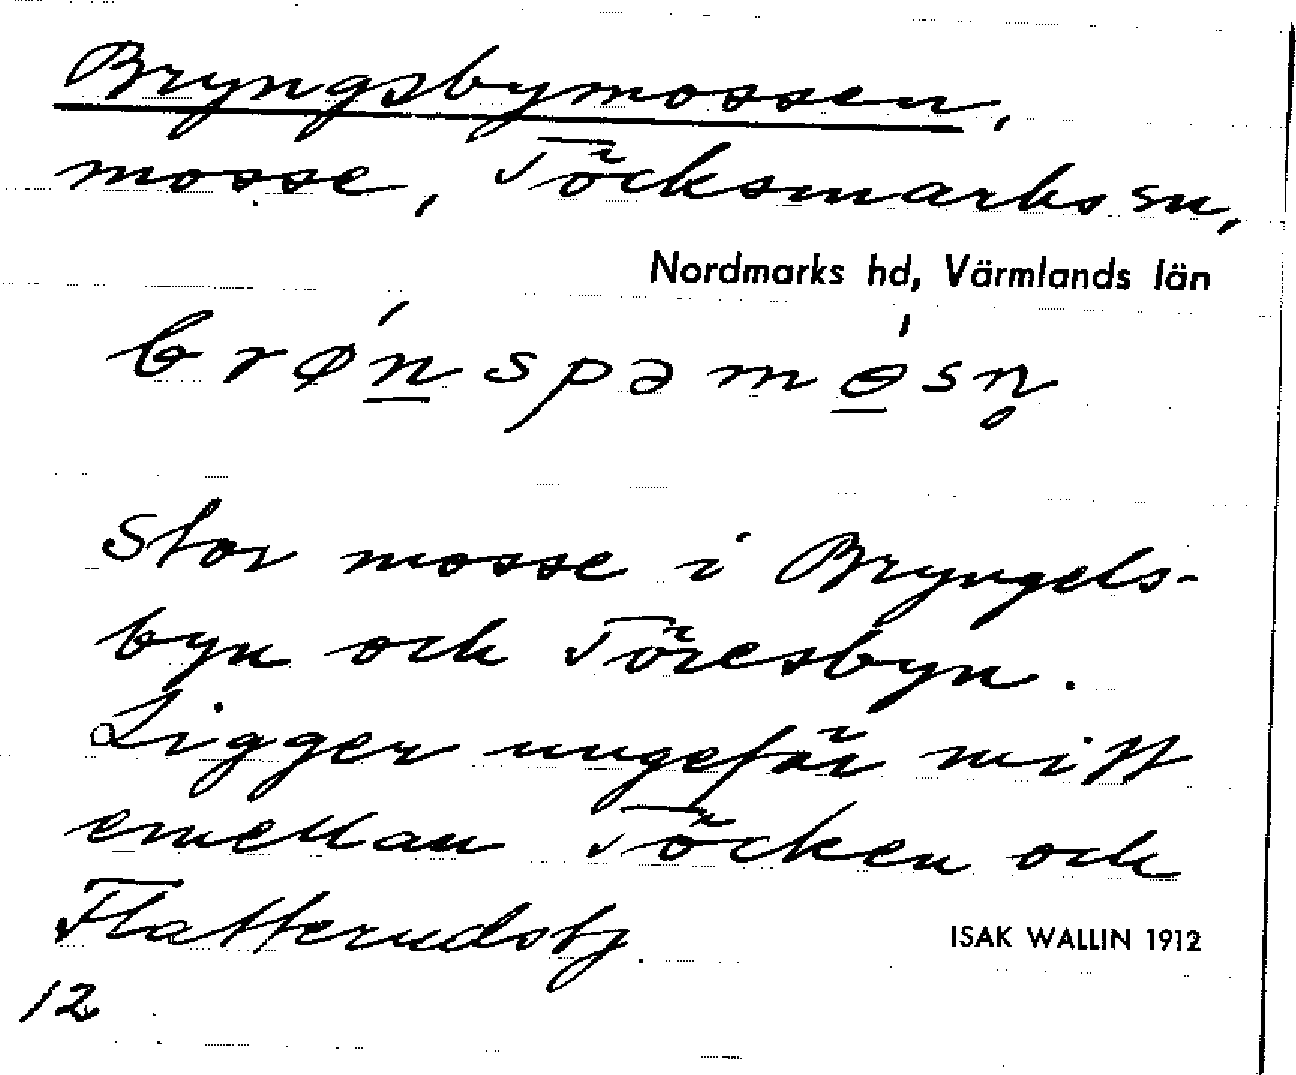 Bryngsbymossen,
mosse, Töcksmarks sn,
Nordmarks hd, Värmlands län
brøńspəmɵ́sn̥
Stor mosse i Bryngels-
byn och Töresbyn.
Ligger ungefär mitt
emellan Töcken och
ISAK WALLIN 1912
12